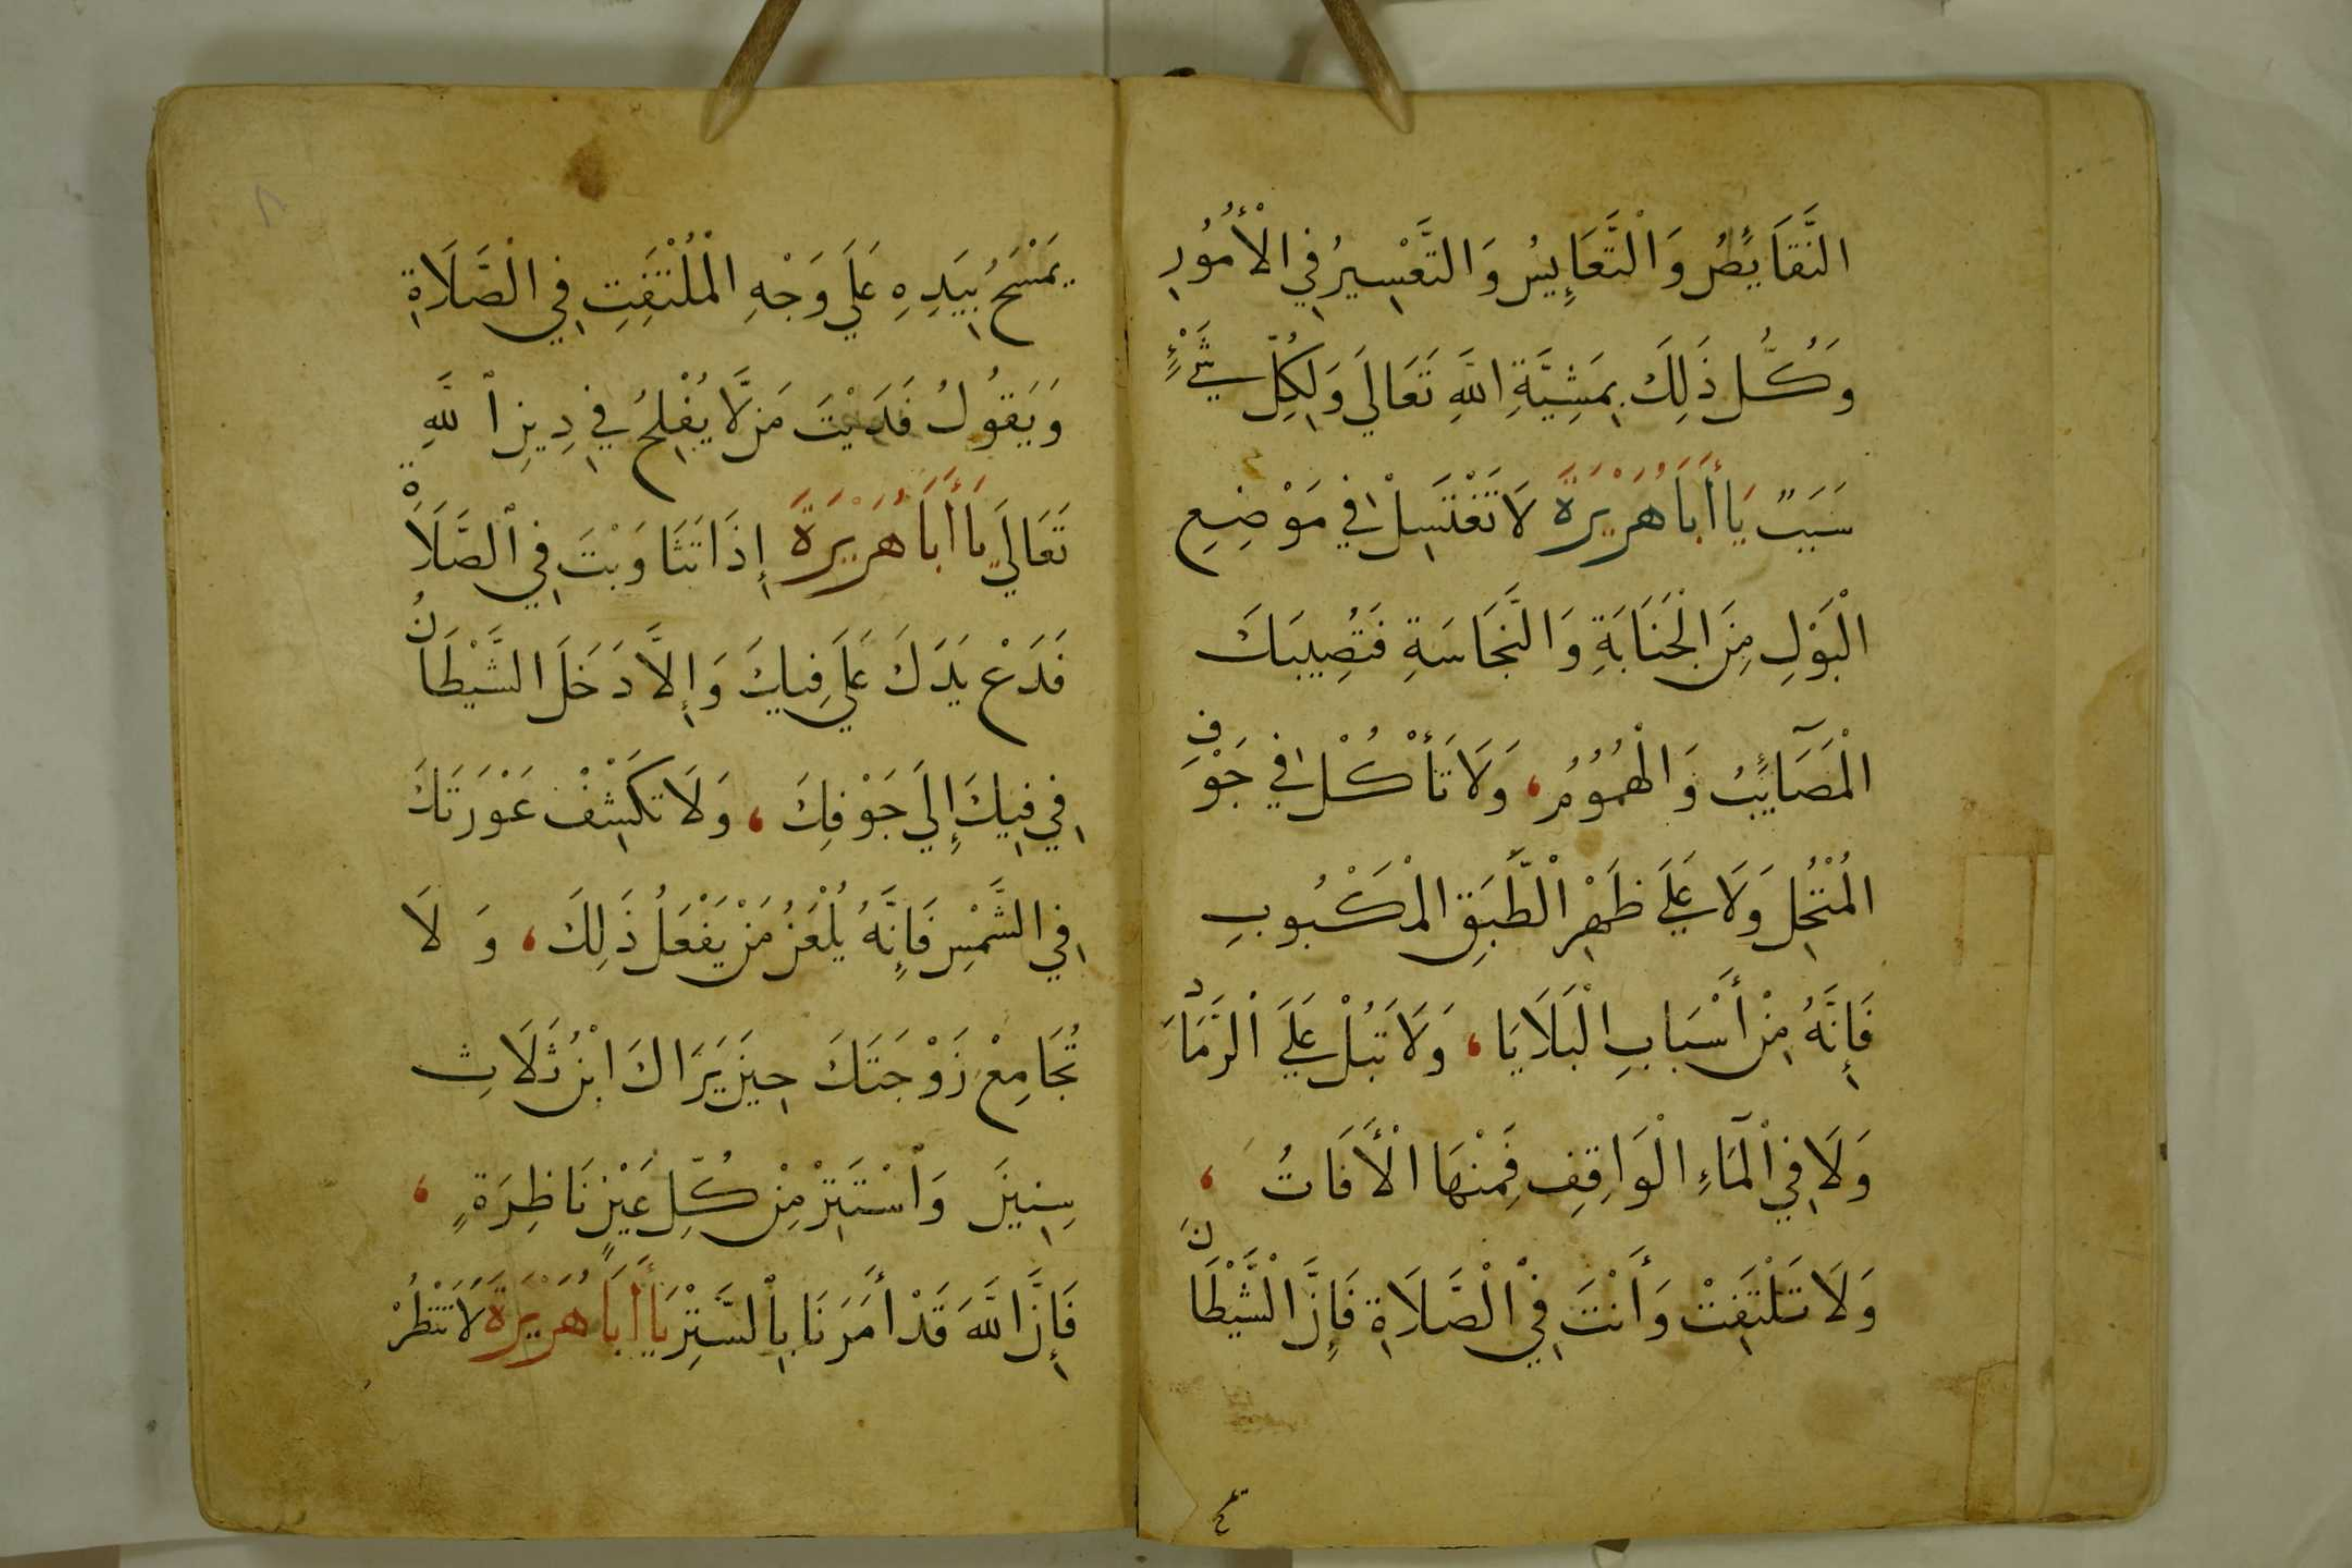 النَّقَايِٕصُ وَالْتَّعَابِيسُ وَالتَّعْسِيرُ فِي الْأُمُوُرِ
وَكُلُّ ذَلِكَ بِمَشِيَّةِ اللَّهِ تَعَالَي وَلِكُلِّ شَيْءٍ
سَبَبٌ يَا أَبَا هُرَيْرَةَ لَا تَغْتَسِلْ فِي مَوْضِعِ
الْبَوْلِ مِنَ الْجَنَابَةِ وَالنَّجَاسَةِ فَتُصِيبَكَ
الْمَصَآئِبُ وَالْهُمُوُمُ، وَلَا تَأْكُلْ فِي جَوْفِ
الْمُنْخُلِ وَلَا عَلَي ظَهْرِ الْطَّبَقِ الْمَكْبُوبِ
فَإِنَّهُ مِنْ أَسْبَابِ الْبَلَايَا، وَلَا تَبُلْ عَلَي الْرَّمَاد
وَلَا فِي الْمَآءِ الْوَاقِفِ فَمِنْهَا الْأَفَاتُ،
وَلَا تَلْتَفِتْ وَأَنْتَ فِي الْصَّلَاةِ فَإِنَّ الْشَّيْطَانَ
يَمْسَحُ بِيَدِهِ عَلَي وَجْهِ الْمُلْتَفِتِ فِي الْصَّلَاةِ
وَيَقُولُ فَدَيْتَ مَن لَّا يُفْلِحُ فِي دِينِ اللَّهِ
تَعَالَي يَا أَبَا هُرَيْرَةَ إِذَا تَثَاوَبْتَ فِي الصَّلَاةْ
فَدَعْ يَدَكَ عَلَي فِيكَ وَإِلَّا دَخَلَ الشَّيْطَانُ
فِي فِيكَ إِلَي جَوْفِكَ، وَلَا تَكْشِفْ عَوْرَتَكَ
فِي الشَّمْسِ فَإِنَّهُ يُلْعَنُ مَنْ يَفْعَلُ ذَلِكَ، وَلَا
تُجَامِعْ زَوْجَتَكَ حِينَ يَرَاكَ ابْنُ ثَلَاثِ
سِنِينَ وَاسْتَتِرْ مِنْ كُلِّ عَيْنٍ نَاظِرَةٍ،
فَإِنَّ اللَّهَ قَدْ أَمَرَنَا بِالسَّتِرْ يَا أَبَا هُرَيْرَةَ لَا تَنْظُرْ